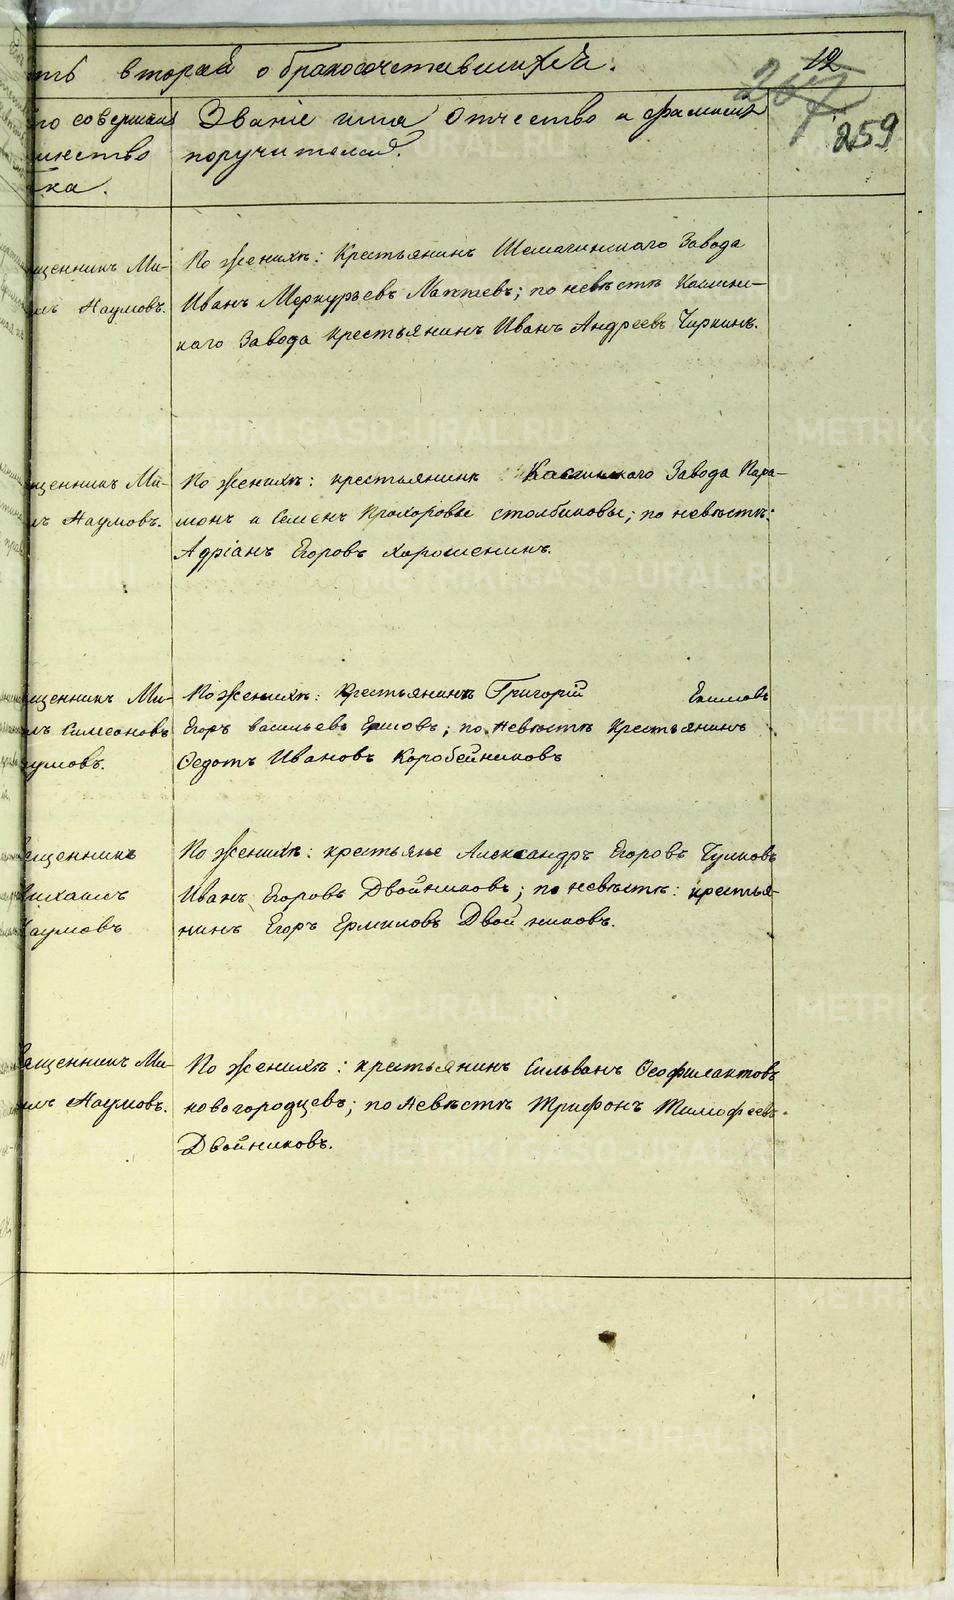 ть вторая о бракосочетавшихся.
12
267
259
го совершал
инство
ка.
Званіе имя Отчество и фамилія
поручителей.
щенникъ Ми-
лъ Наумовъ.
По женихѣ: Крестьянинъ Шемахинскаго Завода
Иванъ Меркурьевъ Лаптевъ; по невѣстѣ Каслин-
каго Завода крестьянинъ Иванъ Андреевъ Чиркинъ.
щенникъ Ми-
лъ Наумовъ.
По женихѣ: крестьянинъ Каслинскаго Завода Пара-
монъ и Семенъ Прохоровы Столбиковы; по невѣстѣ:
Адріанъ Егоровъ Хорошенинъ.
щенникъ Ми-
лъ Симеоновъ
умовъ.
По женихѣ: Крестьянинъ Григорій Екимовъ
Егоръ Васильевъ Ершовъ; по невѣстѣ Крестьянинъ
Федотъ Ивановъ Коробейниковъ
ященникъ
Михаилъ
Наумовъ
По женихѣ: крестьяне Александръ Егоровъ Чуликовъ
Иванъ Егоровъ Двойниковъ; по невѣстѣ: крестья-
нинъ Егоръ Ермиловъ Двойниковъ.
ященникъ Ми-
илъ Наумовъ.
По женихѣ: крестьянинъ Сильванъ Феофилактовъ
новогородцевъ; по невѣстѣ Трифонъ Тимофеевъ
Двойниковъ.
METRIKI.GASO-URAL.RU